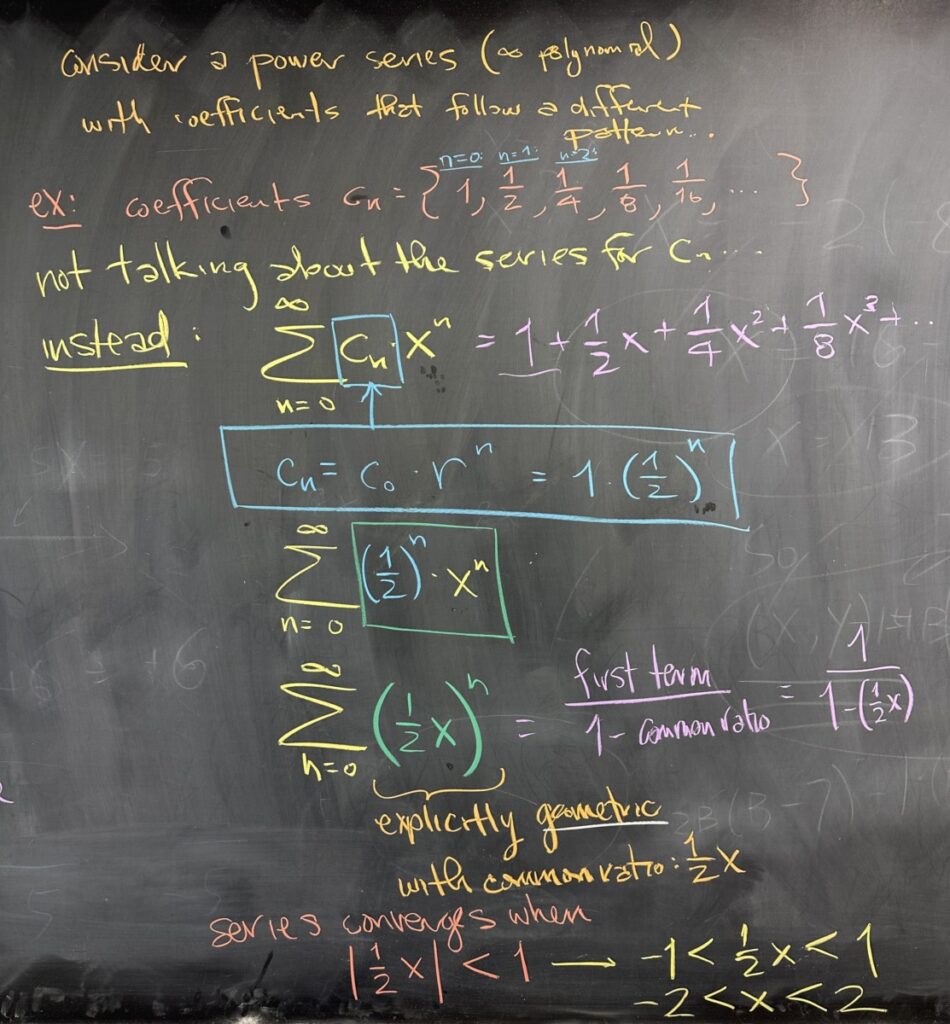 consider a power series (∞ polynomial)
with coefficients that follow a different
pattern...
n=0: n=1: n=2:
ex: coefficients cₙ = { 1, 1/2, 1/4, 1/8, 1/16, ... }
not talking about the series for cₙ...
instead: ∑_{n=0}^{∞} cₙ xⁿ = 1 + 1/2 x + 1/4 x² + 1/8 x³ + ...
cₙ = c₀ · rⁿ = 1 · (1/2)ⁿ
∑_{n=0}^{∞} (1/2)ⁿ · xⁿ
∑_{n=0}^{∞} (1/2 x)ⁿ = first term / 1 - common ratio = 1 / 1-(1/2 x)
explicitly geometric
with common ratio: 1/2 x
series converges when
|1/2 x| < 1 → -1 < 1/2 x < 1
-2 < x < 2